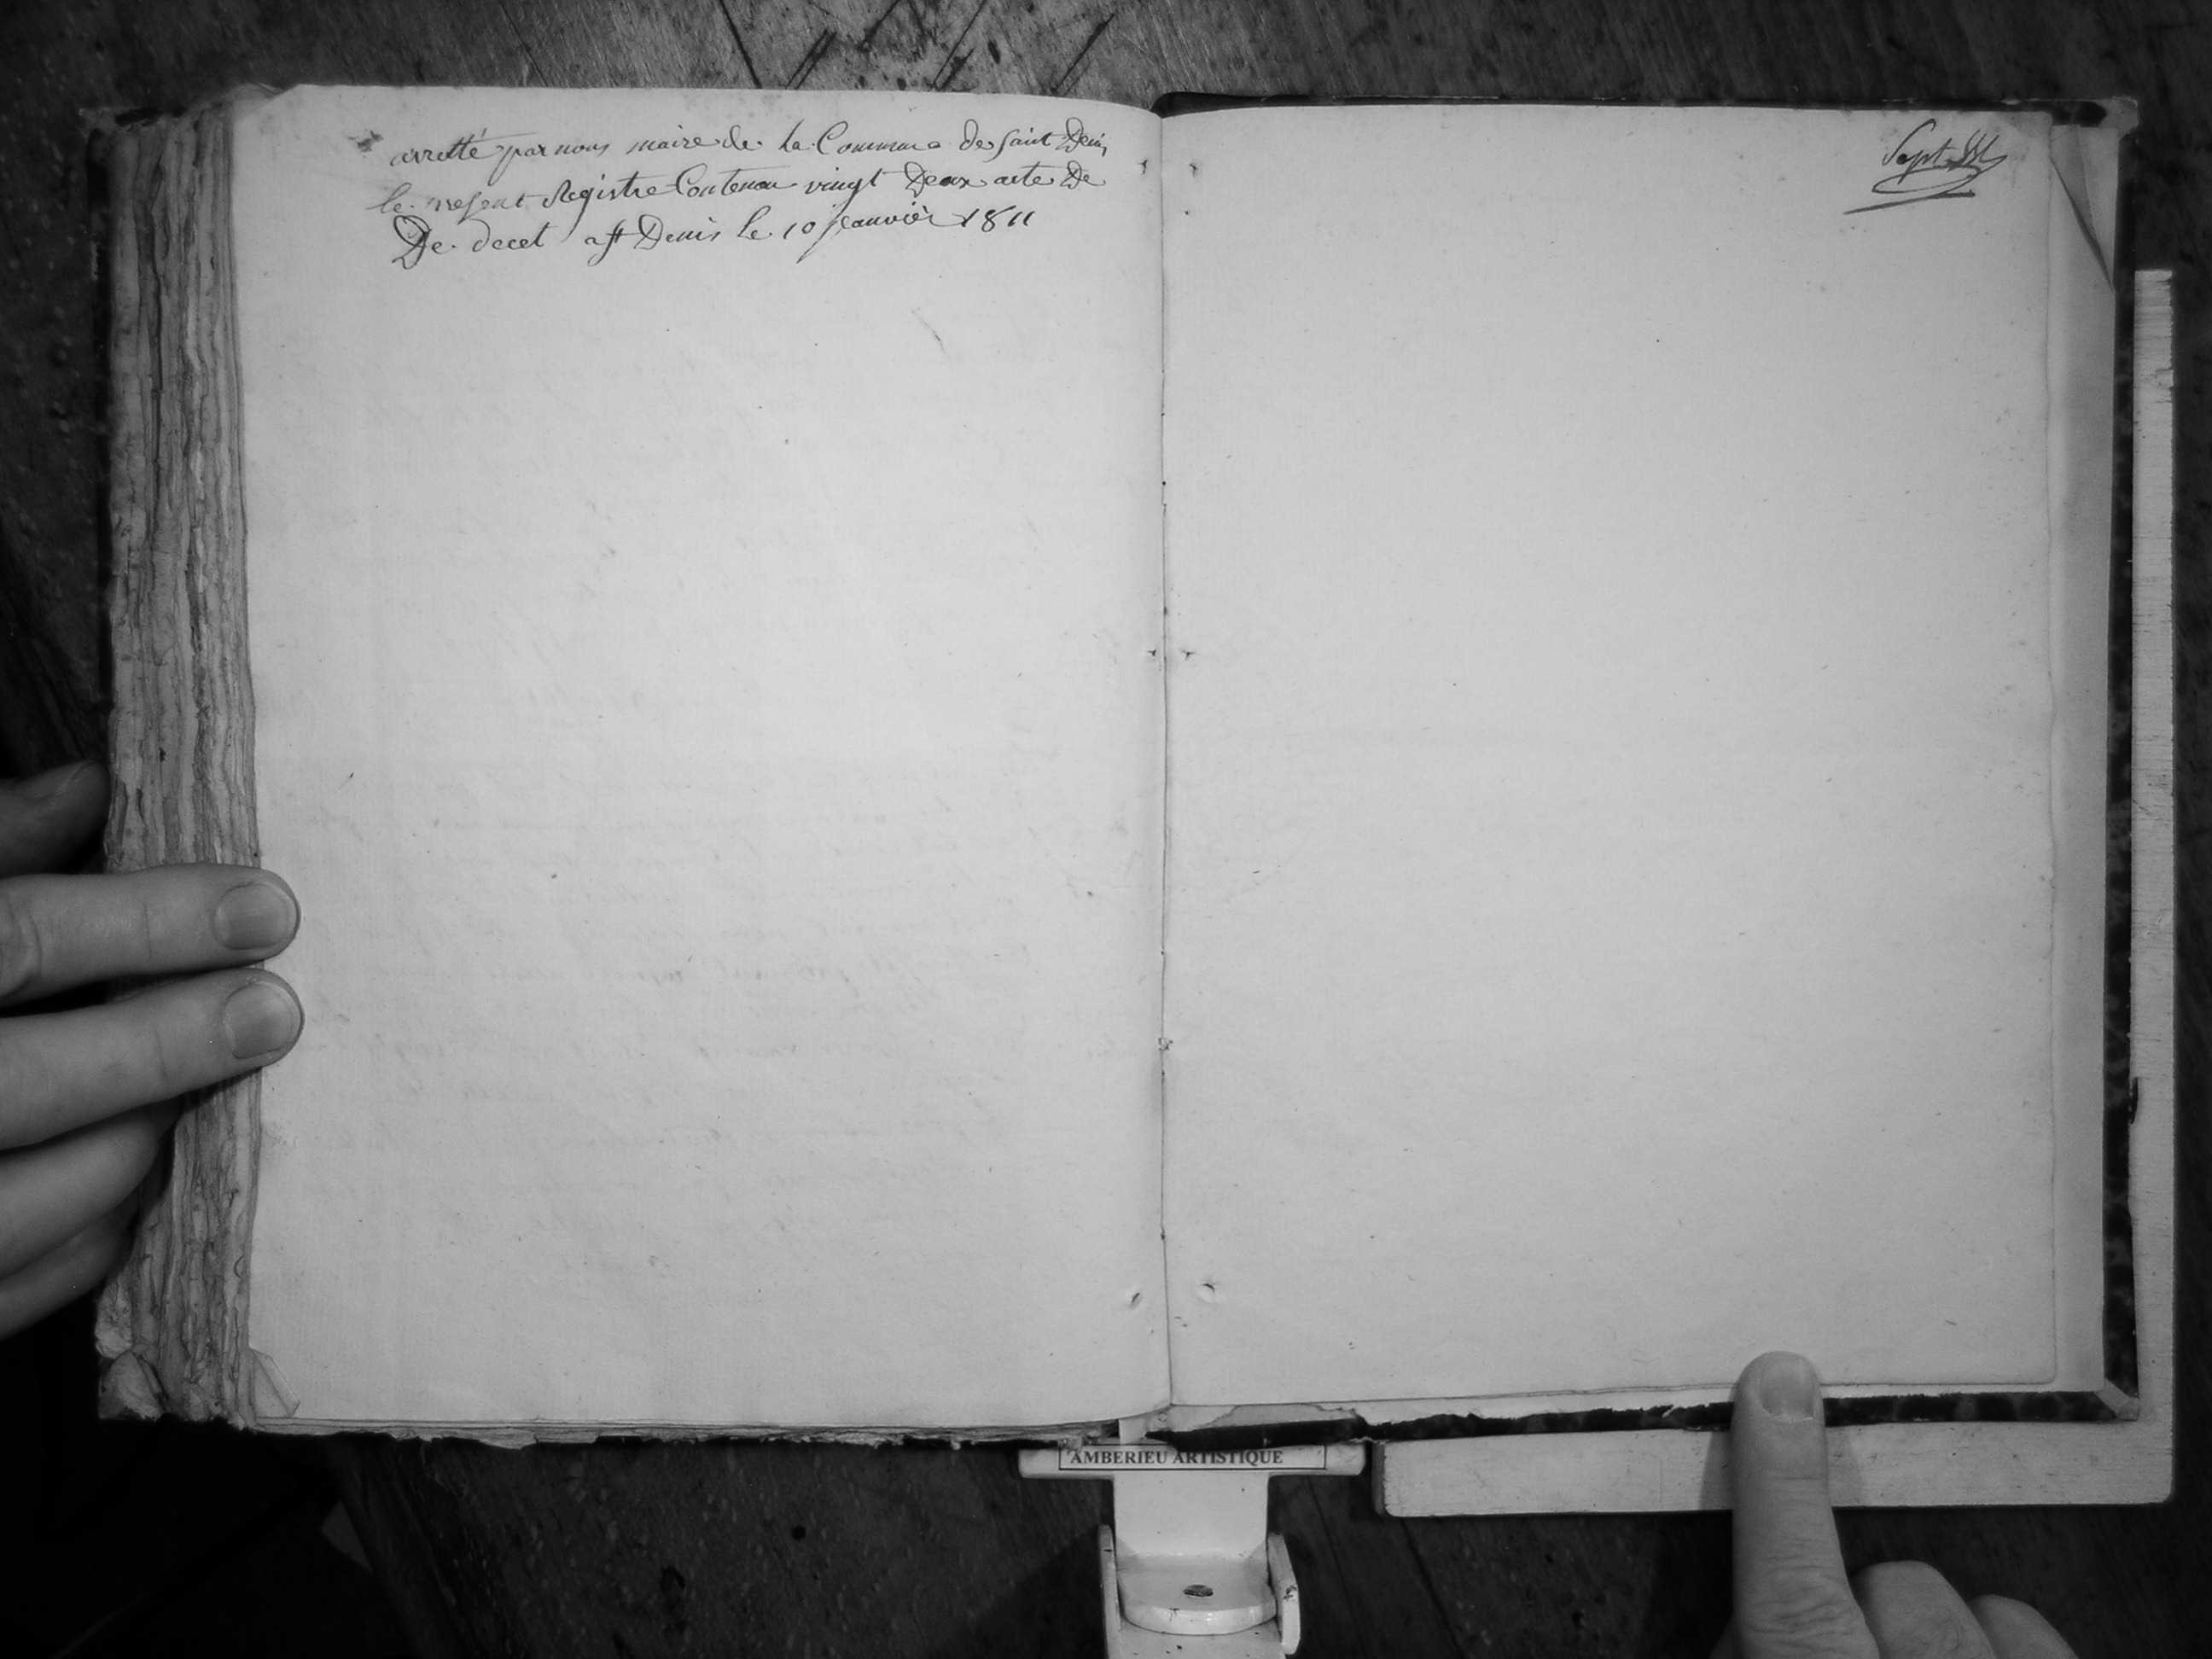 arretté par nous maire de la Commune de saint Denis
le present Registre Contenan vingt Deux acte De
De decet a st Denis le 10 janvier 1811
Sept
AMBERIEU ARTISTIQUE